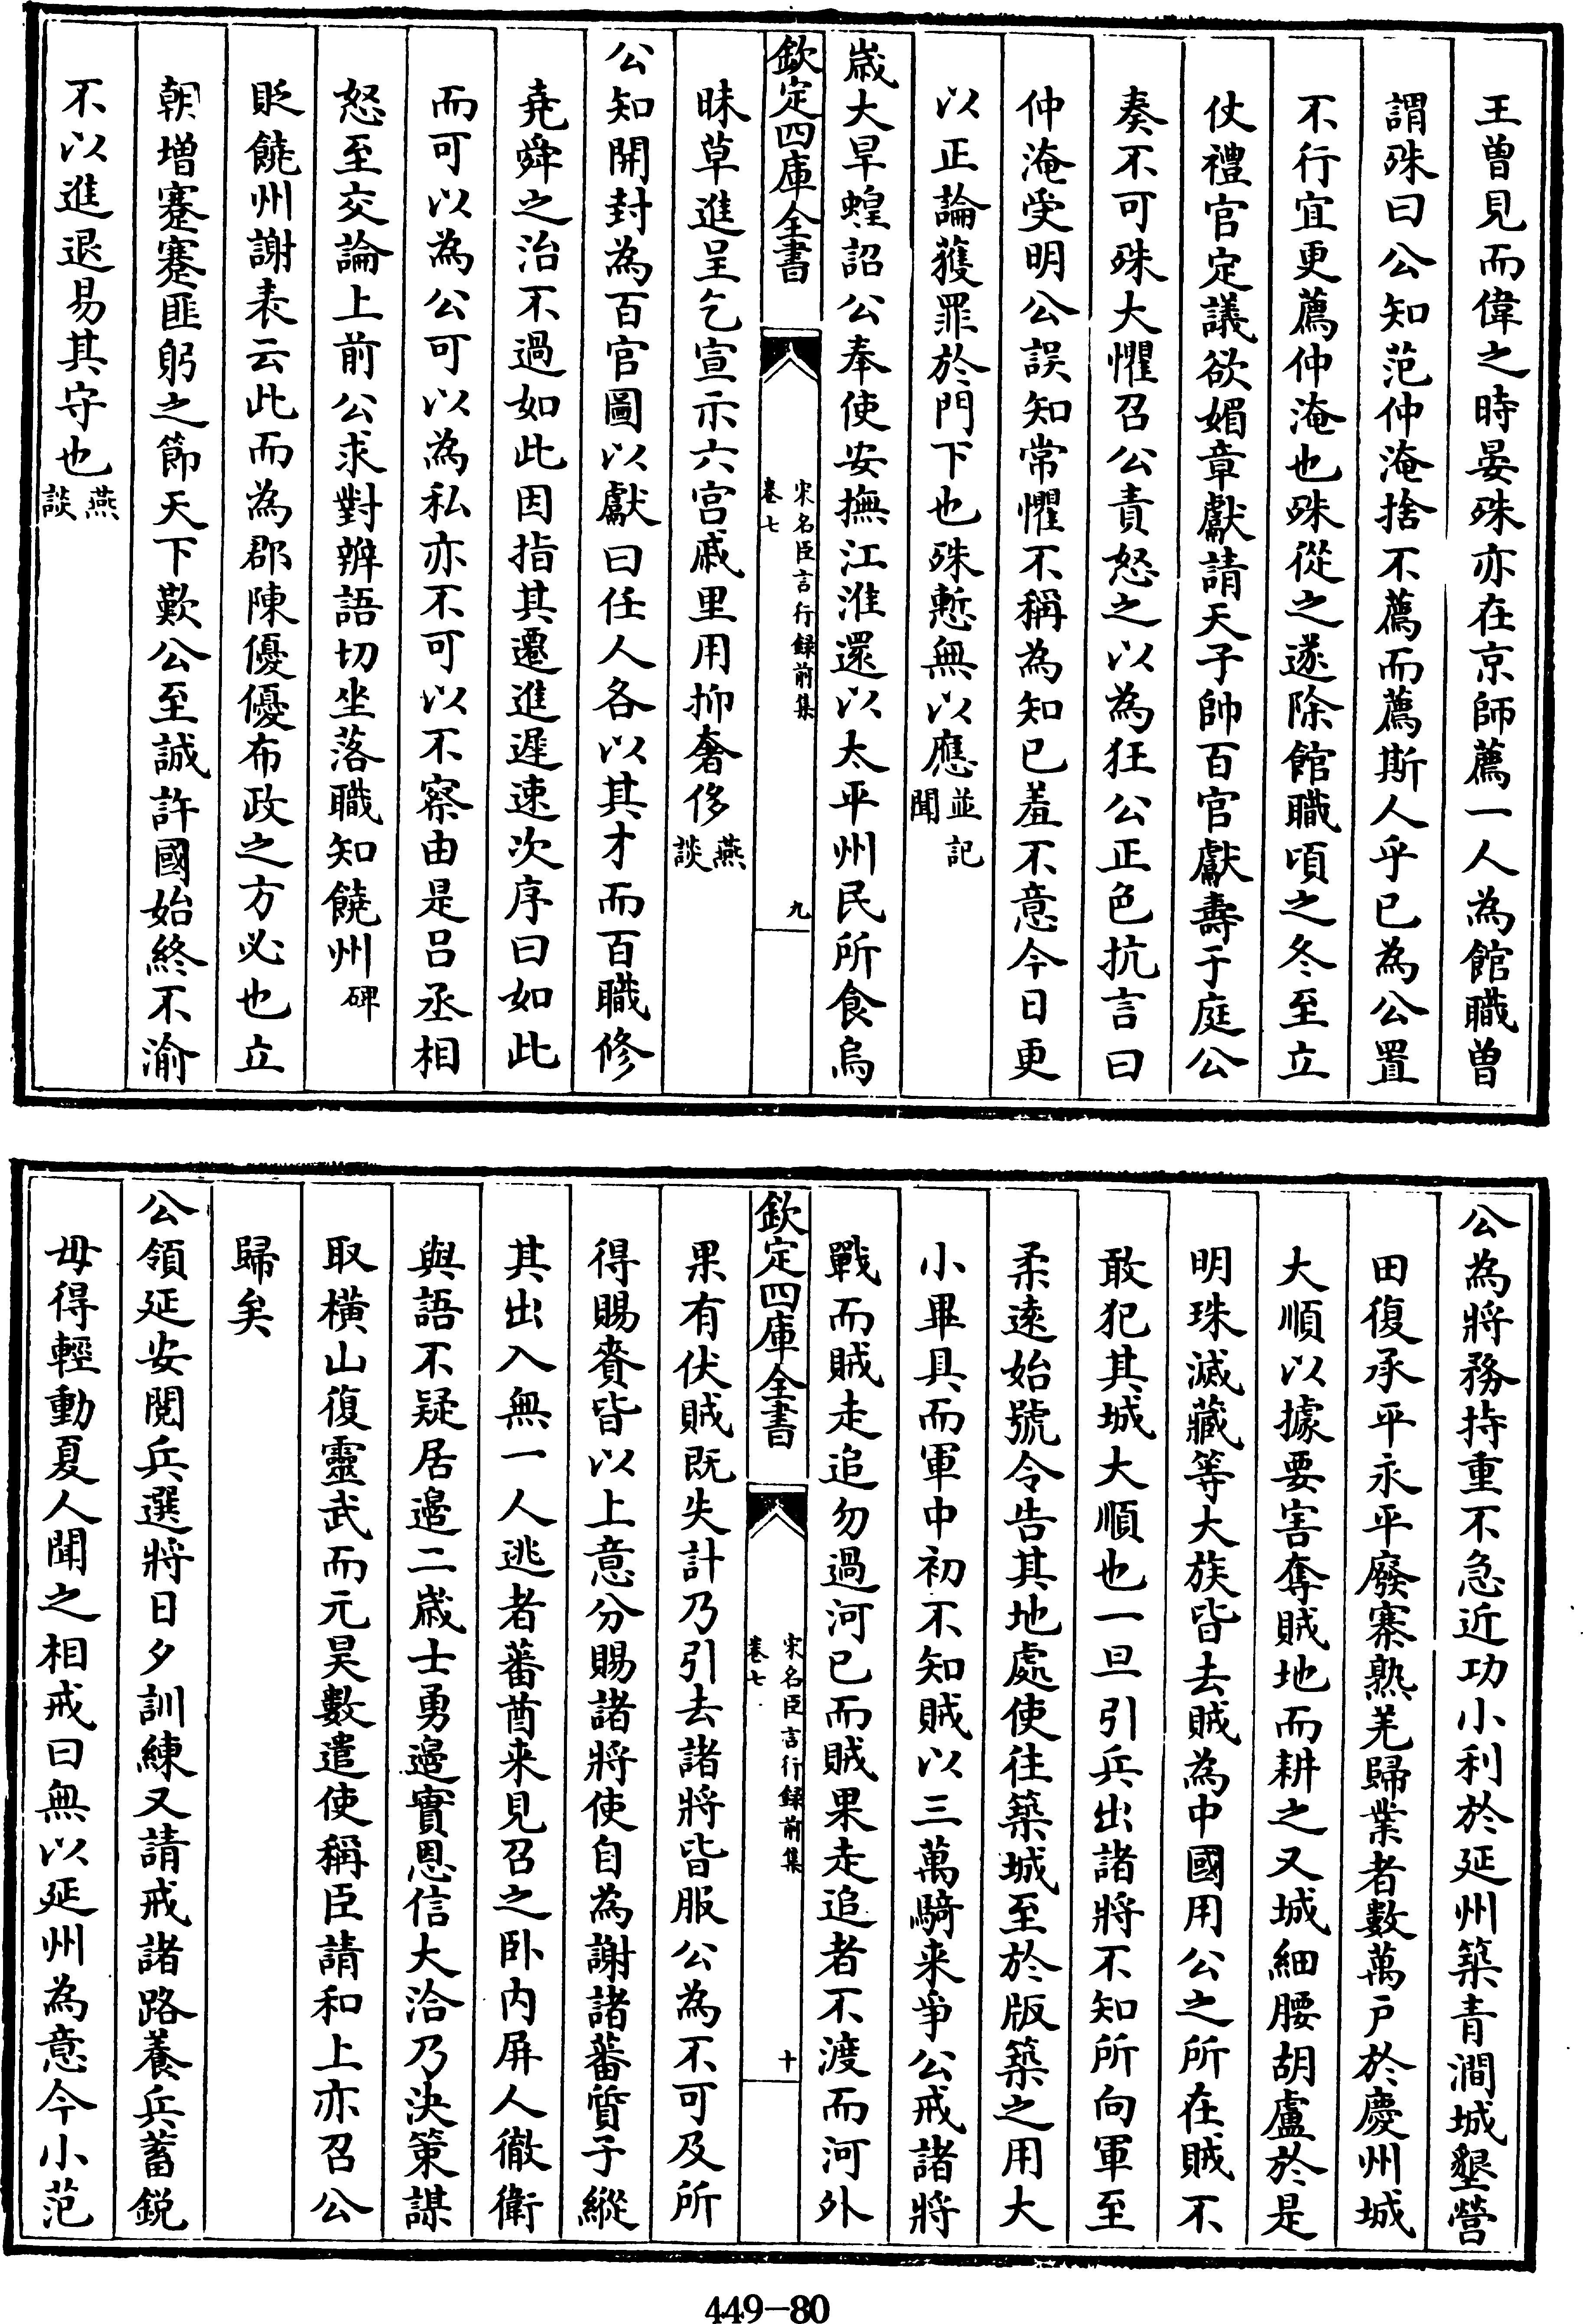 王曽見而偉之時晏殊亦在京師薦一人為館職曽
謂殊曰公知范仲淹捨不薦而薦斯人乎已為公置
不行宜更薦仲淹也殊從之遂除館職頃之冬至立
仗禮官定議欲媚章獻請天子帥百官獻壽于庭公
奏不可殊大懼召公責怒之以為狂公正色抗言曰
仲淹受明公誤知常懼不稱為知已羞不意今日更
以正論獲罪於門下也殊慙無以應並記聞
歳大旱蝗詔公奉使安撫江淮還以太平州民所食烏
欽定四庫全書
宋名臣言行録前集
卷七
九
昧草進呈乞宣示六宫戚里用抑奢侈燕談
公知開封為百官圖以獻曰任人各以其才而百職修
堯舜之治不過如此因指其遷進遲速次序曰如此
而可以為公可以為私亦不可以不察由是吕丞相
怒至交論上前公求對辨語切坐落職知饒州碑
貶饒州謝表云此而為郡陳優優布政之方必也立
朝增蹇蹇匪躬之節天下歎公至誠許國始終不渝
不以進退易其守也燕談
公為將務持重不急近功小利於延州築青澗城墾營
田復承平永平廢寨熟羌歸業者數萬戸於慶州城
大順以據要害奪賊地而耕之又城細腰胡盧於是
明珠滅藏等大族皆去賊為中國用公之所在賊不
敢犯其城大順也一旦引兵出諸將不知所向軍至
柔遠始號令告其地處使往築城至於版築之用大
小畢具而軍中初不知賊以三萬騎来爭公戒諸將
戰而賊走追勿過河已而賊果走追者不渡而河外
欽定四庫全書
宋名臣言行録前集
卷七
十
果有伏賊既失計乃引去諸將皆服公為不可及所
得賜賚皆以上意分賜諸將使自為謝諸蕃質子縱
其出入無一人逃者蕃酋来見召之卧内屏人徹衛
與語不疑居邉二歳士勇邉實恩信大洽乃決策謀
取横山復靈武而元昊數遣使稱臣請和上亦召公
歸矣
公領延安閲兵選將日夕訓練又請戒諸路養兵蓄鋭
毋得輕動夏人聞之相戒曰無以延州為意今小范
449-80